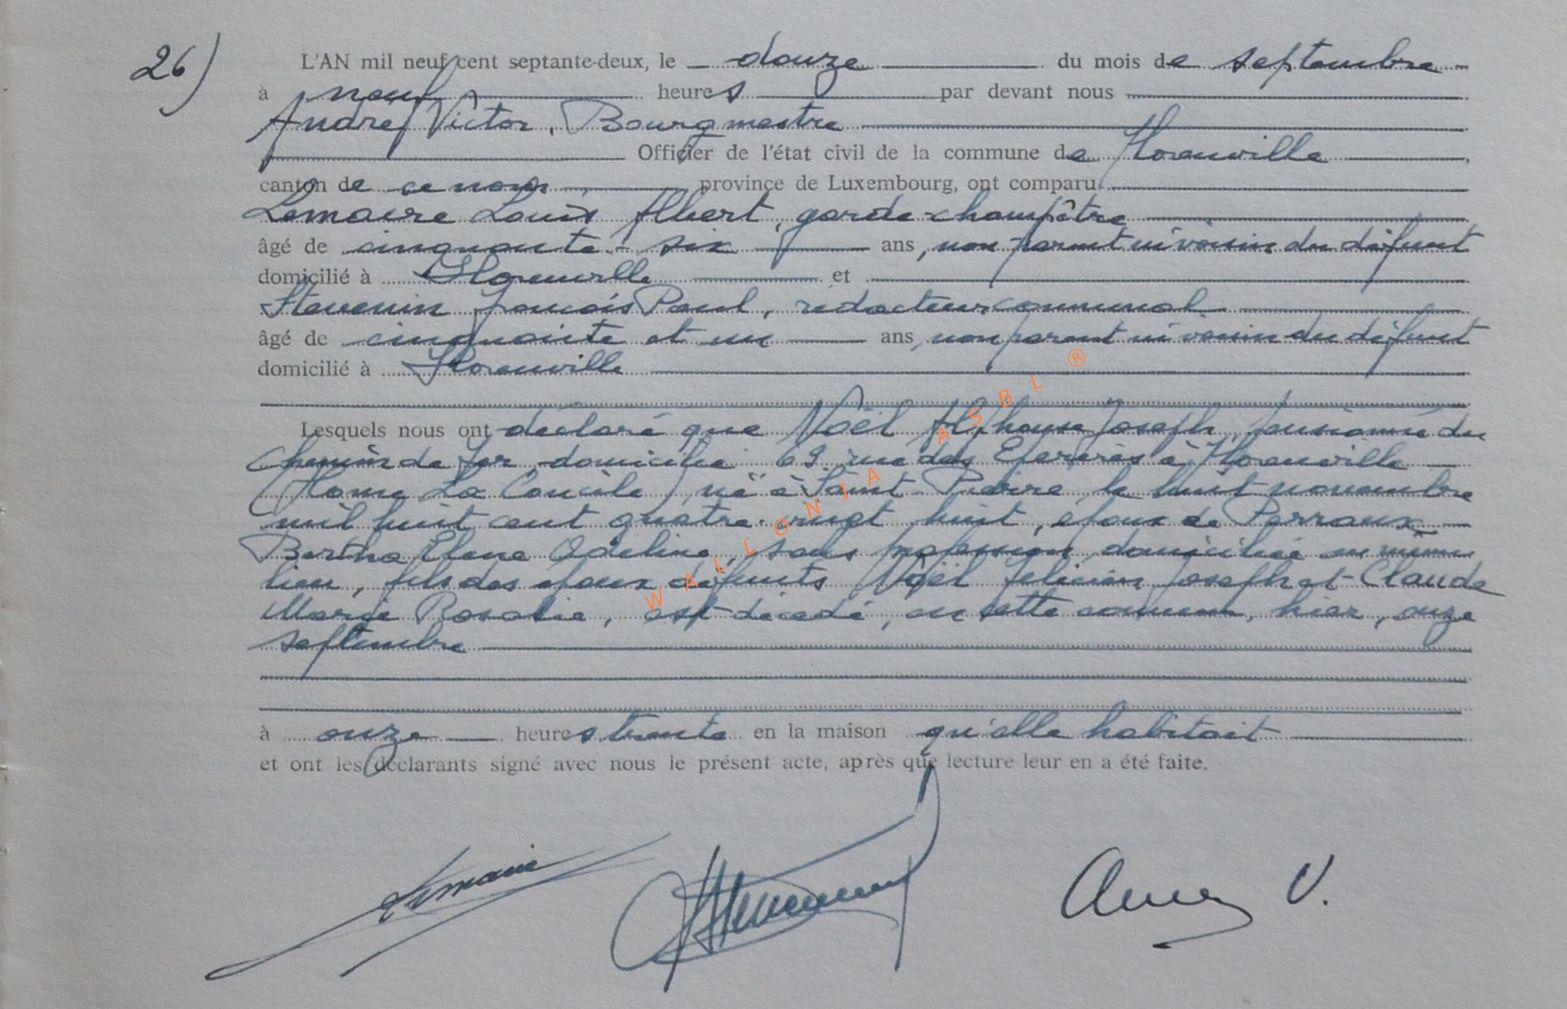 26) L'AN mil neuf cent septante-deux, le douze du mois de septembre
à neuf heures par devant nous
André Victor, Bourgmestre
Officier de l'état civil de la commune de Florenville
canton de ce nom province de Luxembourg, ont comparu:
Lemaire Louis Albert, garde-champêtre
âgé de cinquante-six ans, non parent ni voisin du défunt
domicilié à Florenville et
Stevenin François Paul, rédacteur communal
âgé de cinquante et un ans, non parent ni voisin du défunt
domicilié à Florenville
Lesquels nous ont déclaré que Noël Alphonse Joseph, pensionné du
Chemin de fer, domicilié 69 rue des Eperires à Florenville
(Home La Concile) né à Saint-Pierre le huit novembre
mil huit cent quatre-vingt huit, époux de Perraux
Bertha Elena Odeline, sans profession, domiciliée au même
lieu, fils des époux défunts Noël Félicien Joseph et Claude
Marie Rosalie, est décédé, en cette commune, hier, onze
septembre
à onze heures trente en la maison qu'elle habitait
et ont les déclarants signé avec nous le présent acte, après que lecture leur en a été faite.
Lemaire Stevenin V.
WALLONIA ASBL ®